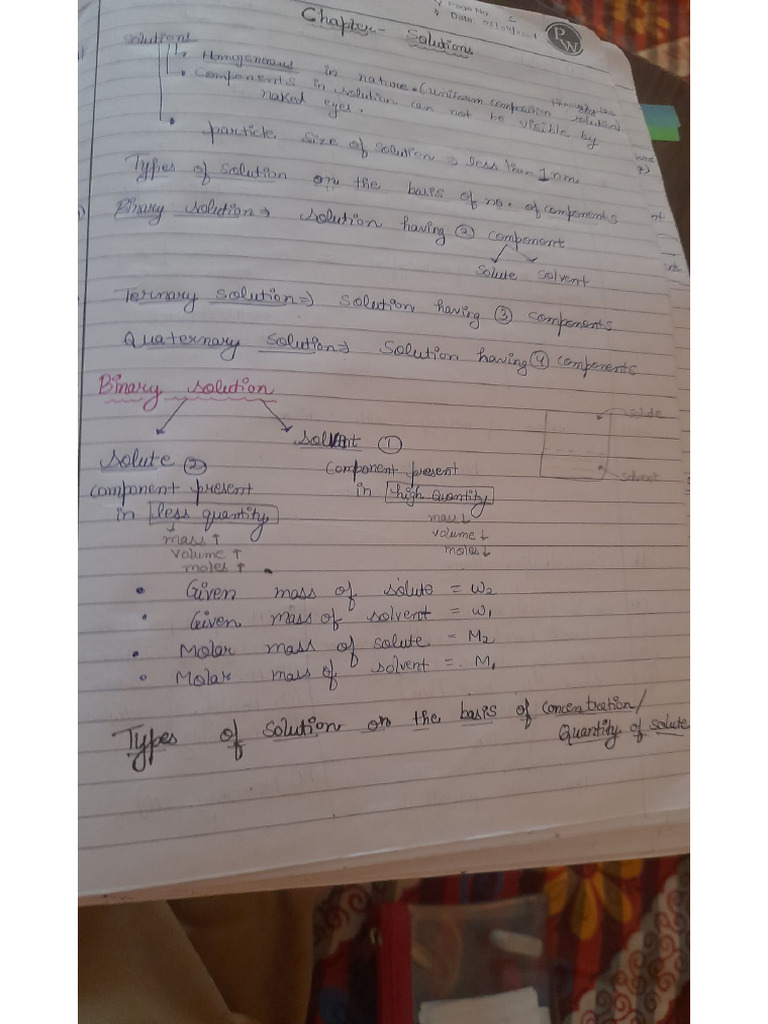 Page No. 2
Date:
PW
Chapter - Solutions
Solutions
Homogeneous in nature. (uniform composition throughout the solution)
Components in solution can not be visible by
naked eyes.
particle size of solution → less than 1nm
Types of solution on the basis of no. of components
Binary solution ⇒ solution having ② component
solute solvent
Ternary solution ⇒ solution having ③ components
Quaternary solution ⇒ solution having ④ components
Binary solution
solute ②
component present
in less quantity
mass ↑
volume ↑
moles ↑
solvent ①
component present
in high quantity
mass ↓
volume ↓
moles ↓
solute
solvent
• Given mass of solute = w₂
• Given mass of solvent = w₁
• Molar mass of solute = M₂
• Molar mass of solvent = M₁
Types of solution on the basis of concentration/
Quantity of solute